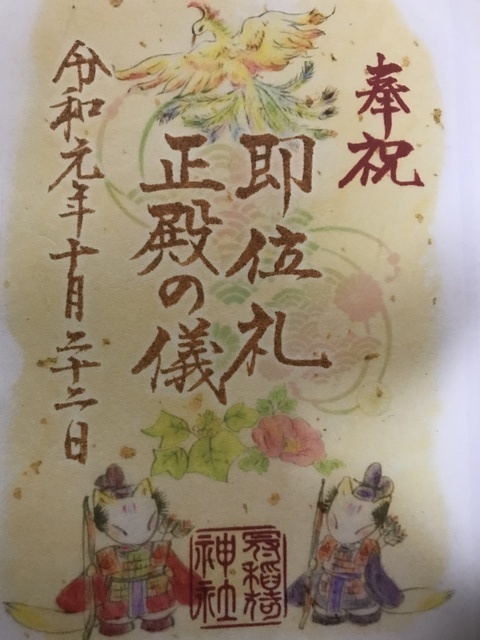 奉祝
即位礼
正殿の儀
令和元年十月二十二日
稲荷
神社